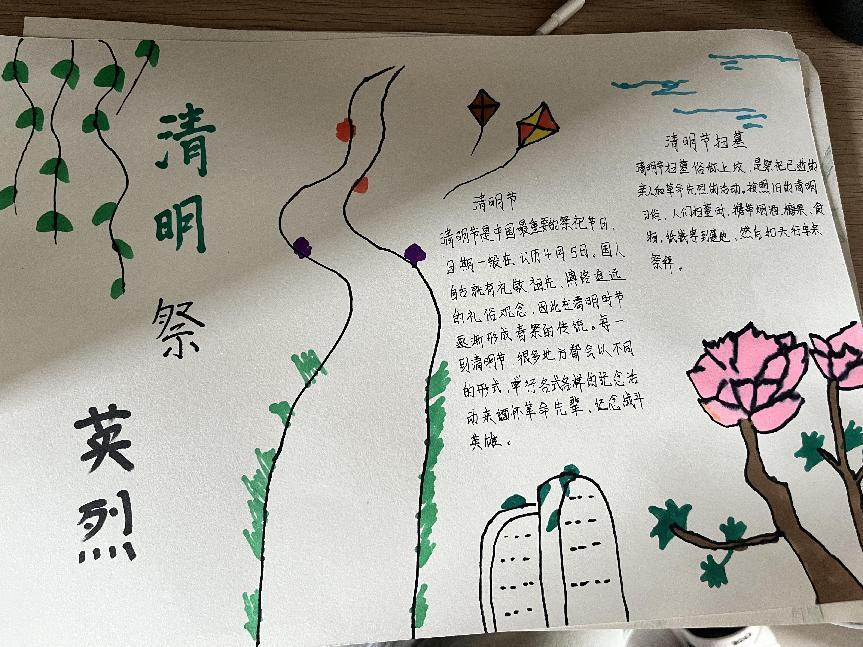 清明祭英烈
清明节
清明节是中国最重要的祭祀节日,
日期一般在公历4月5日。国人
自古就有礼敬祖先、慎终追远
的礼俗观念,因此在清明时节
逐渐形成春祭的传统。每一
到清明节,很多地方都会以不同
的形式,举行各式各样的纪念活
动来缅怀革命先辈、纪念战斗
英雄。
清明节扫墓
清明节扫墓俗称上坟,是祭祀已逝的
亲人和革命先烈的活动。按照旧的清明
习俗,人们扫墓时,携带酒、糖果、食
物、纸钱等到墓地,然后
祭拜。